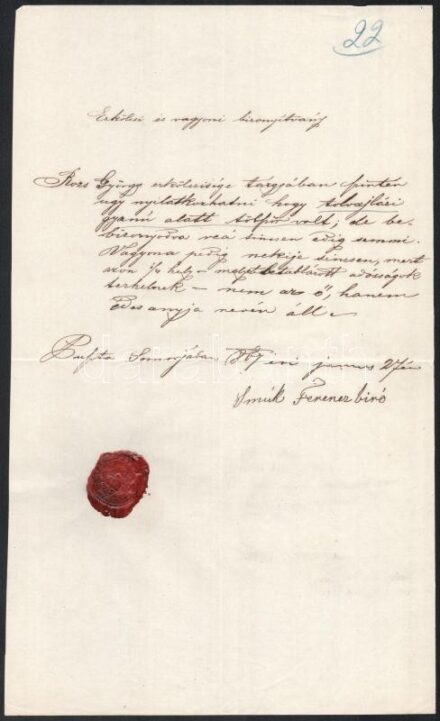 22
Erkölcsi és vagyoni bizonyítvány
Rozs György erkölcsisége tárgyában
úgy nyilatkozhatni hogy tolvajlási
gyanú alatt több volt; de be-
bizonyodva reá sincsen edig semmi.
Vagyona pedig nekije sincsen, mert
azon hely melyet adósságok
terhelnek – nem az ő, hanem
Édes anyja nevén áll.
Puszta Somorjában évi junius 27én
Smúk Ferencz biró